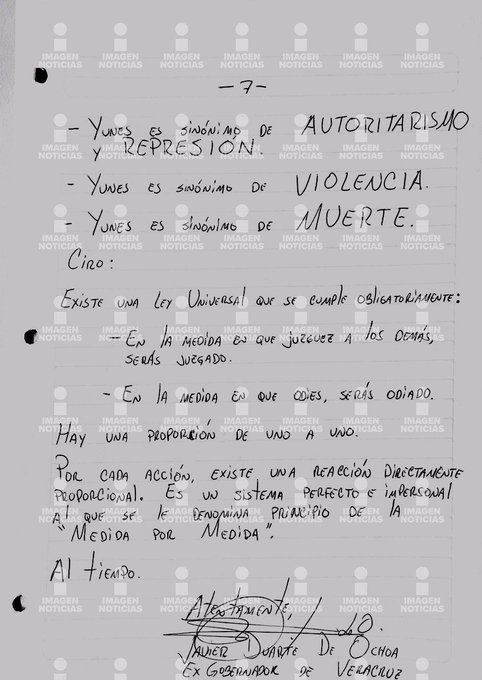 - 7 -
- YUNES ES SINÓNIMO DE AUTORITARISMO
Y REPRESIÓN.
- YUNES ES SINÓNIMO DE VIOLENCIA.
- YUNES ES SINÓNIMO DE MUERTE.
CIRO:
EXISTE UNA LEY UNIVERSAL QUE SE CUMPLE OBLIGATORIAMENTE:
- EN LA MEDIDA EN QUE JUZGUEZ A LOS DEMÁS,
SERÁS JUZGADO.
- EN LA MEDIDA EN QUE ODIES, SERÁS ODIADO.
HAY UNA PROPORCIÓN DE UNO A UNO.
POR CADA ACCIÓN, EXISTE UNA REACCIÓN DIRECTAMENTE
PROPORCIONAL. ES UN SISTEMA PERFECTO E IMPERSONAL
AL QUE SE LE DENOMINA PRINCIPIO DE LA
"MEDIDA POR MEDIDA".
AL TIEMPO.
ATENTAMENTE,
JAVIER DUARTE DE OCHOA
EX GOBERNADOR DE VERACRUZ
IMAGEN NOTICIAS